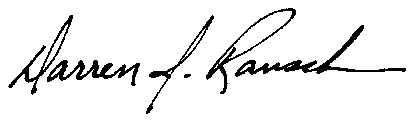 Darren J. Rausch